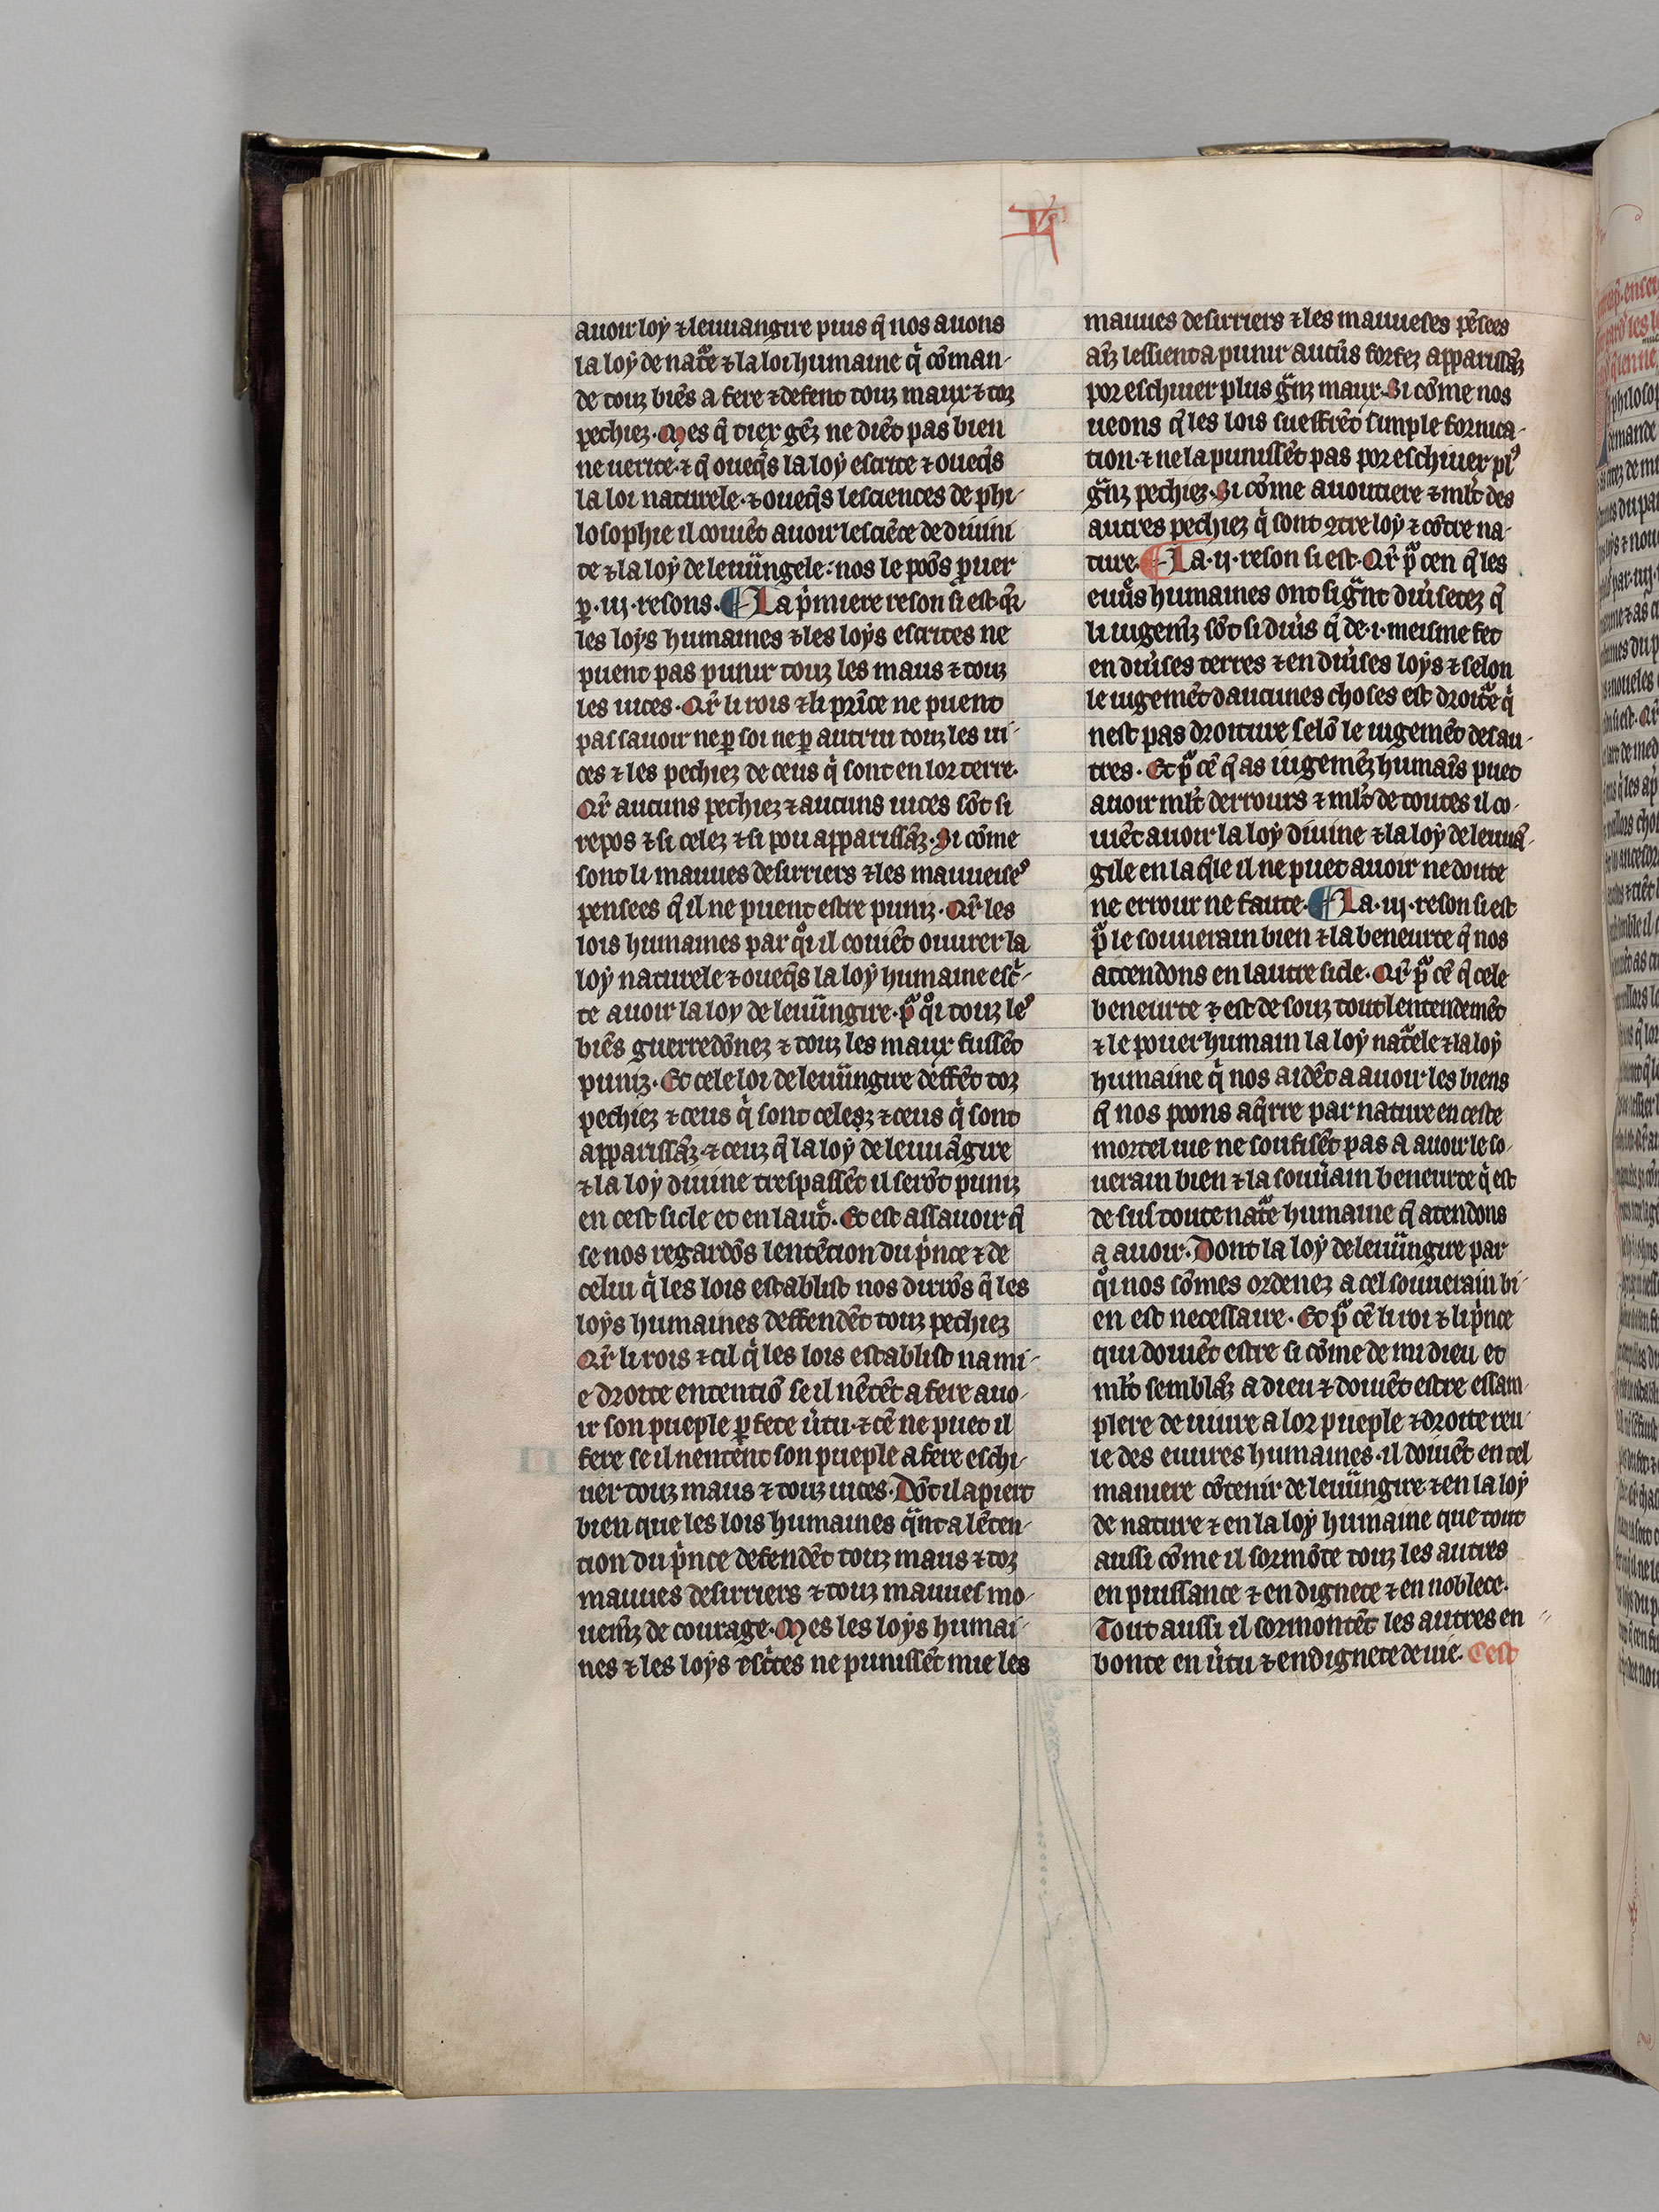 auoir loy ⁊ leuuangire puis q̄ nos auons
la loy de natᵃe ⁊ la loi humaine qͥ cōman-
de touz biēs a fere ⁊ defent touz maux ⁊ toz
pechiez. Mes q̄ tiex gēz ne diēt pas bien
ne uerite. ⁊ q̄ ouecq̄s la loy escrite ⁊ oueq̄s
la loi naturele. ⁊ oueq̄s lesciences de phi-
losophie il couiēt auoir lesciēce de diuini
te ⁊ la loy de leuuͣngele: nos le poōs ꝓuer
ꝑ .iij. resons. ¶ La pͥmiere reson si est. qr̄
les loys humaines ⁊ les loys escrites ne
puent pas punir touz les maus ⁊ touz
les uices. Qr̄ li rois ⁊ li prīce ne puent
pas sauoir ne ꝑ soi ne ꝑ autrui touz les ui-
ces ⁊ les pechiez de ceus qͥ sont en lor terre.
Qr̄ aucuns pechiez ⁊ aucuns uices sōt si
repos ⁊ si celez ⁊ si pou apparissāz. Si cōme
sont li mauues desirriers ⁊ les mauueiseˢ
pensees q̄ il ne puent estre puniz. Qr̄ les
lois humaines par qͦi il couiēt ouurer la
loy naturele ⁊ oueq̄s la loy humaine escͥ-
te auoir la loy de leuuͣngire. pͬ qͦi touz leˢ
biēs guerredōnez ⁊ touz les maux fussēt
puniz. Et cele loi de leuuͣngire deffēt toz
pechiez ⁊ ceus qͥ sont celesz ⁊ ceus qͥ sont
apparissāz. ⁊ ceuz q̄ la loy de leuuāgire
⁊ la loy diuine trespassēt il serōt puniz
en cest siecle et en lautͬ. Et est assauoir q̄
se nos regardōs lentēcion du pͥnce ⁊ de
celui qͥ les lois establist nos dirrōs q̄ les
loys humaines deffendēt touz pechiez
Qr̄ li rois ⁊ cil qͥ les lois establist na mi-
e droite ententiō se il nētēt a fere auo-
ir son pueple ꝑfete uͬtu. ⁊ cē ne puet il
fere se il nentent son pueple a fere eschi-
uer touz maus ⁊ touz uices. Dōt il apiert
bien que les lois humaines qͣnt a lētēn-
tion du pͥnce defendēt touz maus ⁊ toz
mauues desirriers ⁊ touz mauues mo-
uem̄z de courage. Mes les loys humai-
nes ⁊ les loys escͥtes ne punissēt mie les
mauues desirriers ⁊ les mauueses pēsees
aīz lessient a punir aucūs forfez apparissāz
por eschiuer plus gͣnz maux. Si cōme nos
ueons q̄ les lois sueffrēt simple fornica-
tion. ⁊ ne la punissēt pas por eschiuer plˢ
gͣnz pechiez. Si cōme auoutiere ⁊ ml̄t des
autres pechiez qͥ sont ꝯtre loy ⁊ cōtre na-
ture. ¶ La .ij. reson si est. Qr̄ pͬ cen q̄ les
euuͬs humaines ont si gͣnt diuͬsetez q̄
li iugem̄z sōt si diuͬs q̄ de .i. meisme fet
en diuͬses terres ⁊ en diuͬses loys ⁊ selon
le iugemēt daucunes choses est droitͬe qͥ
nest pas droiture selō le iugemēt des au-
tres. Et pͬ cē q̄ as iugemēz humaīs puet
auoir ml̄t derrours ⁊ ml̄t de toutes il co-
uiēt auoir la loy diuine ⁊ la loy de leuuā-
gile en la q̄le il ne puet auoir ne doute
ne errour ne faute. ¶ La .iij. reson si est
pͬ le souuerain bien ⁊ la beneurte q̄ nos
attendons en lautre siecle. Qr̄ pͬ cē q̄ cele
beneurte ⁊ est de souz tout lentendemēt
⁊ le pouer humain la loy natᵃele ⁊ la loy
humaine qͥ nos aidēt a auoir les biens
q̄ nos poons aq̄rre par nature en ceste
mortel uie ne soufisēt pas a auoir le so-
uerain bien ⁊ la souuͬain beneurte qͥ est
de sus toute natᵃe humaine q̄ atendons
a auoir. Dont la loy de leuuͣngire par
qͦi nos sōmes ordenez a cel souuerain bi-
en est necessaire. Et pͬ cē li roi ⁊ li pͥnce
qui doiuēt estre si cōme demi dieu et
ml̄t semblāz a dieu ⁊ doiuēt estre essam-
plere de uiure a lor pueple ⁊ droite reu-
le des euures humaines. il doiuēt en tel
maniere cōtenir de leuuͣngire ⁊ en la loy
de nature ⁊ en la loy humaine que tout
aussi cōme il sormōte touz les autres
en puissance ⁊ en dignete ⁊ en noblece.
Tout aussi il sormontēt les autres en
bonte en uͬtu ⁊ en dignete de uie. Cest